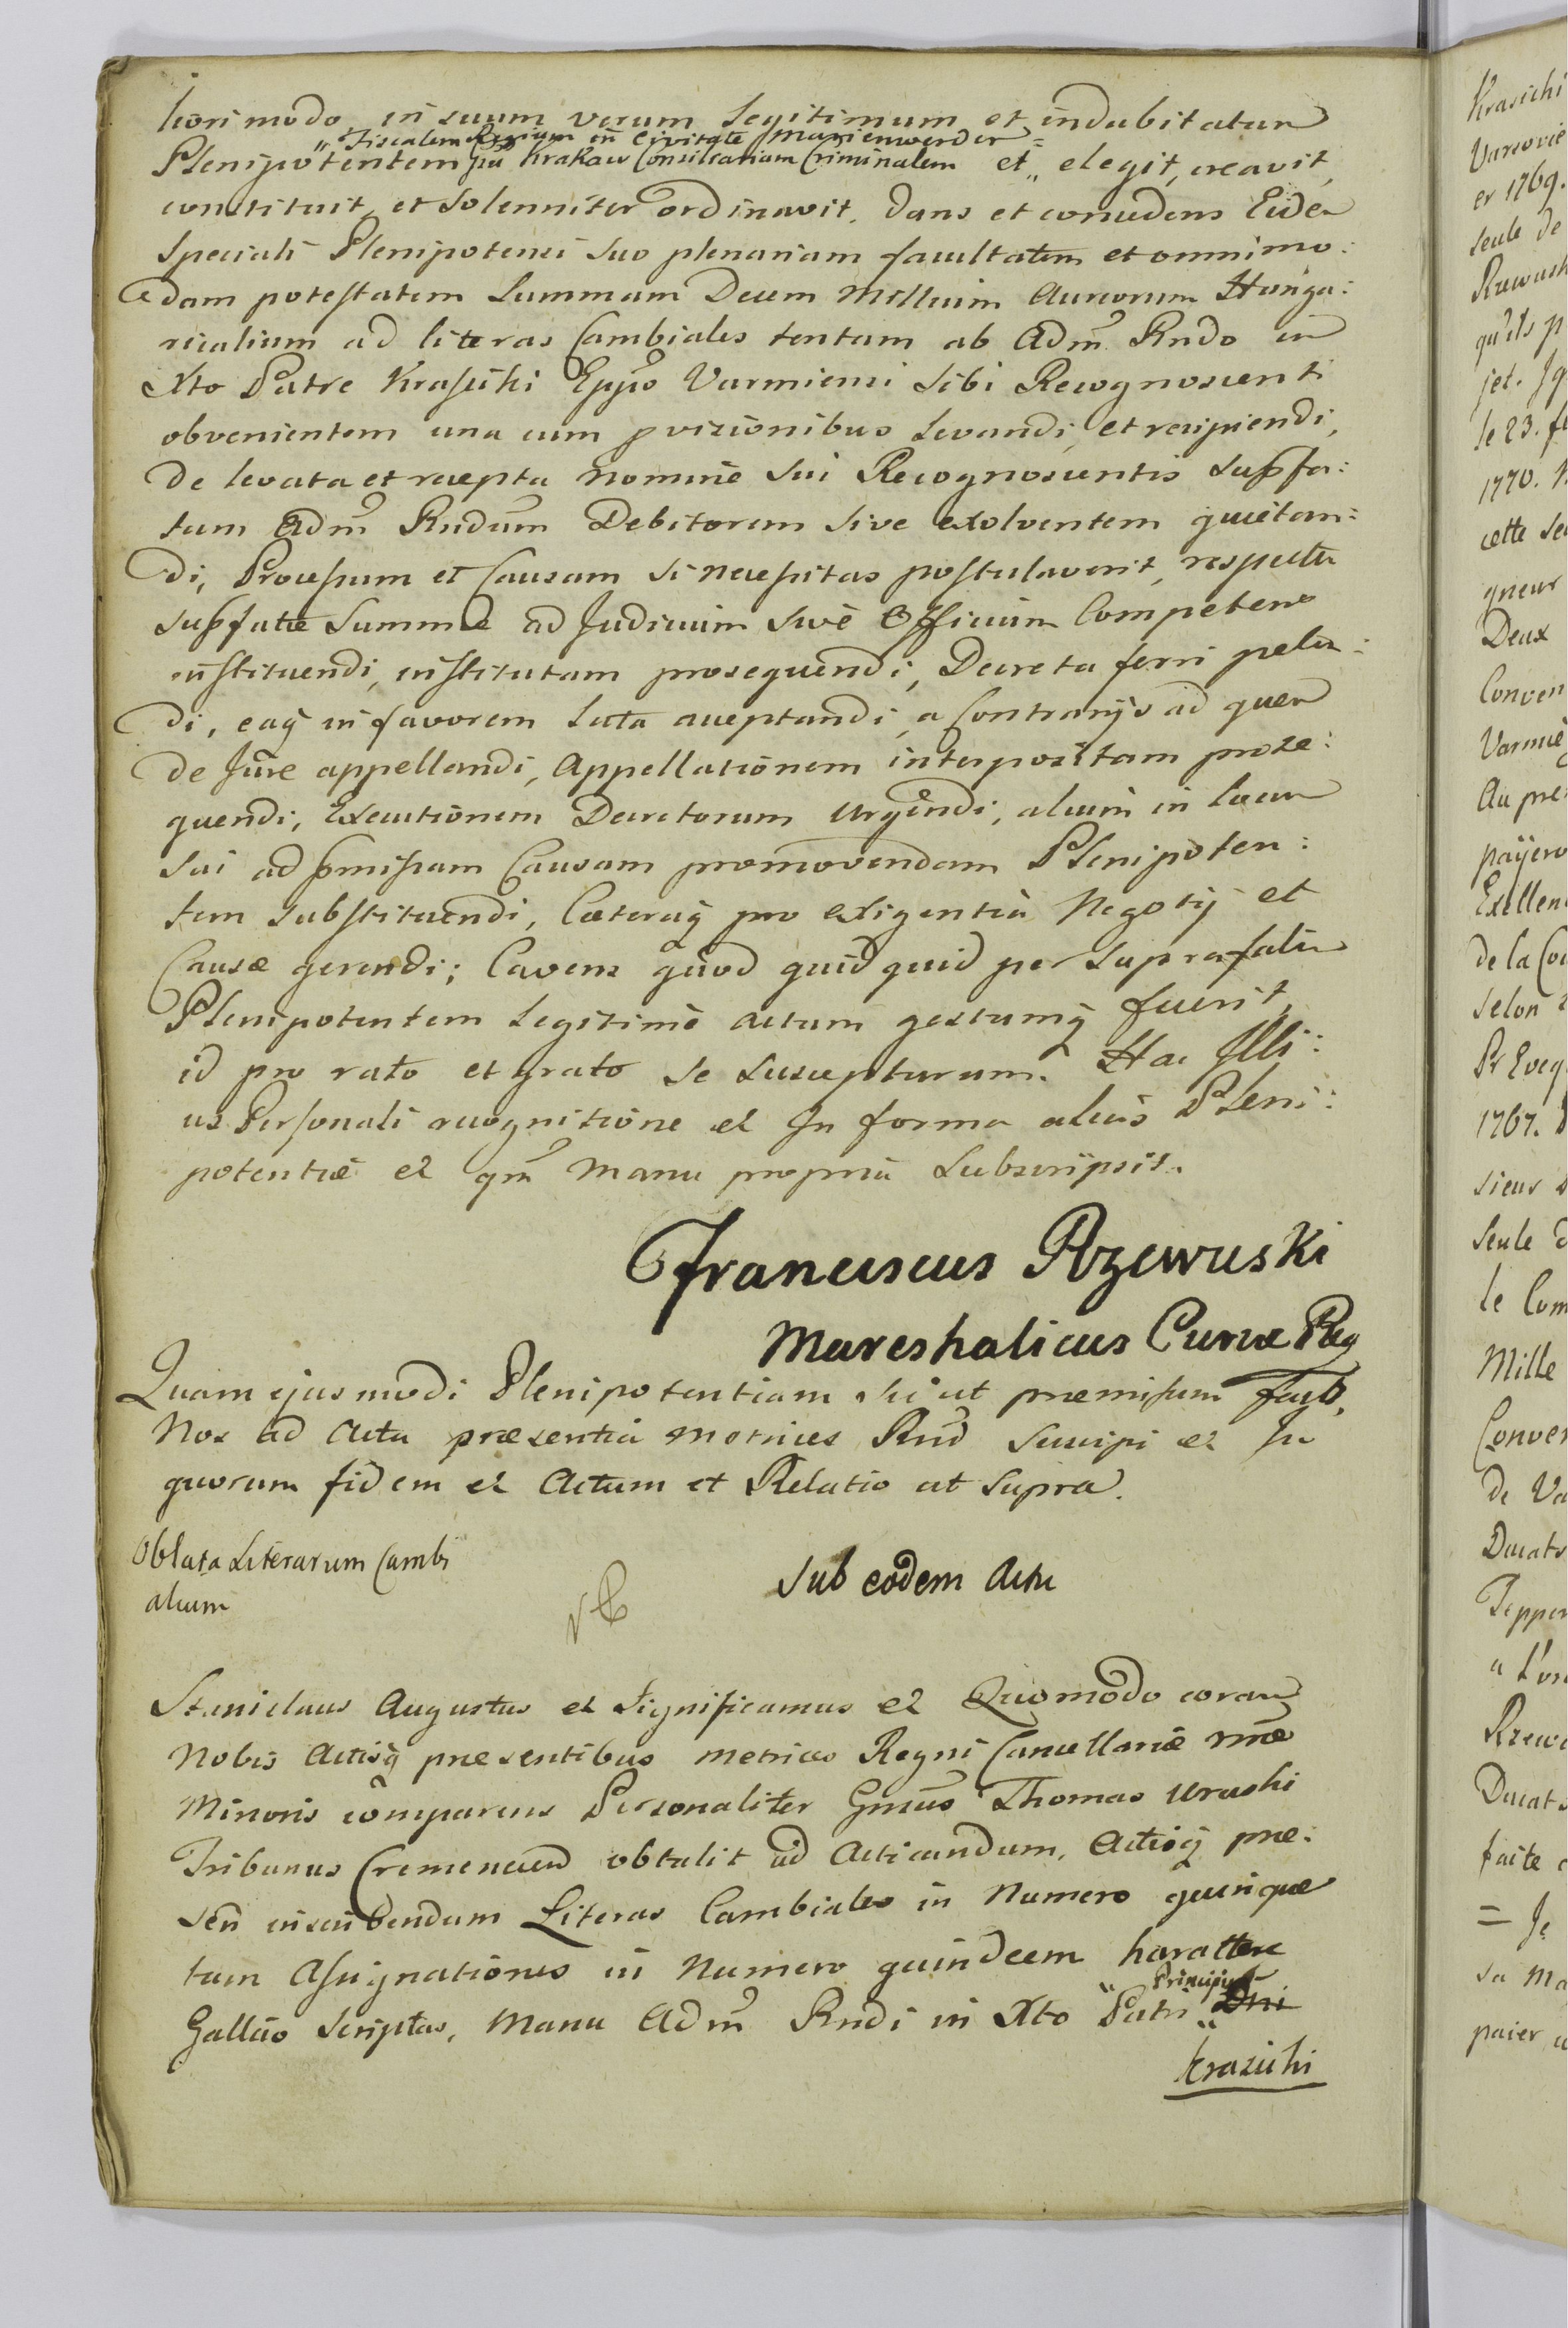 liori modo, in suum verum legitimum et indubitatum
„ Fiscalem Regium in Civitate Marienwerder =
Plenipotentem Gnū Krakau Consiliarium Criminalem et „ elegit, creavit,
constituit, et solenniter ordinavit. dans et concedens Eidem
speciali Plenipotenti suo plenariam facultatem et omnimo:
dam potestatem Summam Decem Millium Aureorum Hunga:
ricalium ad literas Cambiales tentam ab Adm̃ Rndo in
Xto Patre Krasicki Eppo Varmiensi sibi Recognoscenti
obvenientem una cum pvizionibus levandi, et recipiendi,
de levata et recepta nomine sui Recognoscentis supfa:
tum Adm̃ Rndum Debitorem sive exolventem quietan:
di, Processum et Causam si necessitas postulaverit, respectu
supfatæ Summæ ad Judicium sive Officium Competens
instituendi, institutam prosequendi, Decreta ferri peten:
di, eaq̃ in favorem lata acceptandi, a Contrarijs ad quem
de Jure appellandi, Appellationem interpositam proze:
quendi, Executionem Decretorum Urgendi, alium in locum
sui ad pmissam Causam promovendam Plenipoten:
tem substituendi, Cæteraq̃ pro exigentia Negotij et
Causæ gerendi; Cavens quod quidquid per suprafatum
Plenipotentem legitime actum gestumq̃ fuerit,
id pro rato et grato se suscepturum. Hac Illi:
us Personali recognitione et In forma alicis Pleni:
potentiæ et qm̃ manu propria subscripsit.
Franciscus Rzewuski
Mareshalicus Curiæ Reg
Quam ejusmodi Plenipotentiam sicut præmissum fecit,
Nos ad Acta præsentia Metrices Rnd suscipi et In
quorum fidem et Actum et Relatio ut supra.
Oblata Literarum Cambi
alium
Sub eodem Actu
Stanislaus Augustus et Significamus et Quomodo coram
Nobis Actisq̃ præsentibus Metrices Regni Cancellariæ nræ
Minoris comparens Personaliter Gnsus Thomas Uruski
Tribunus Cremenecen obtulit ad Acticandum, Actisq̃ præ:
sen inscribendum Literas Cambiales in Numero quinque
tum Assignationes in Numero quindecem harattere
Principis
Gallico scriptas, Manu Adm̃ Rndi in Xto Patris „ Dni
Krasicki
Krasicki
Varsovie
er 1769.
seule de
Rzewusk
qu'ils p
jet. Ig
le 23. fe
1770.
cette se
gneur
Deux
Conven
Varmie
Au pre
payero
Exellen
de la Co
selon
Pr Eveq
1767.
sieur
Seule d
le Com
Mille
Conven
de Va
Ducats
Tepper
a l'or
Rzew
Ducats
faite
= Je
sa ma
paier